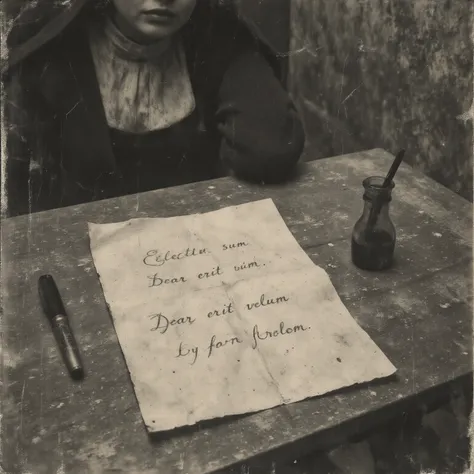 Eclectu sum
Dear erit vim.
Dear erit velum
by farn frolom.